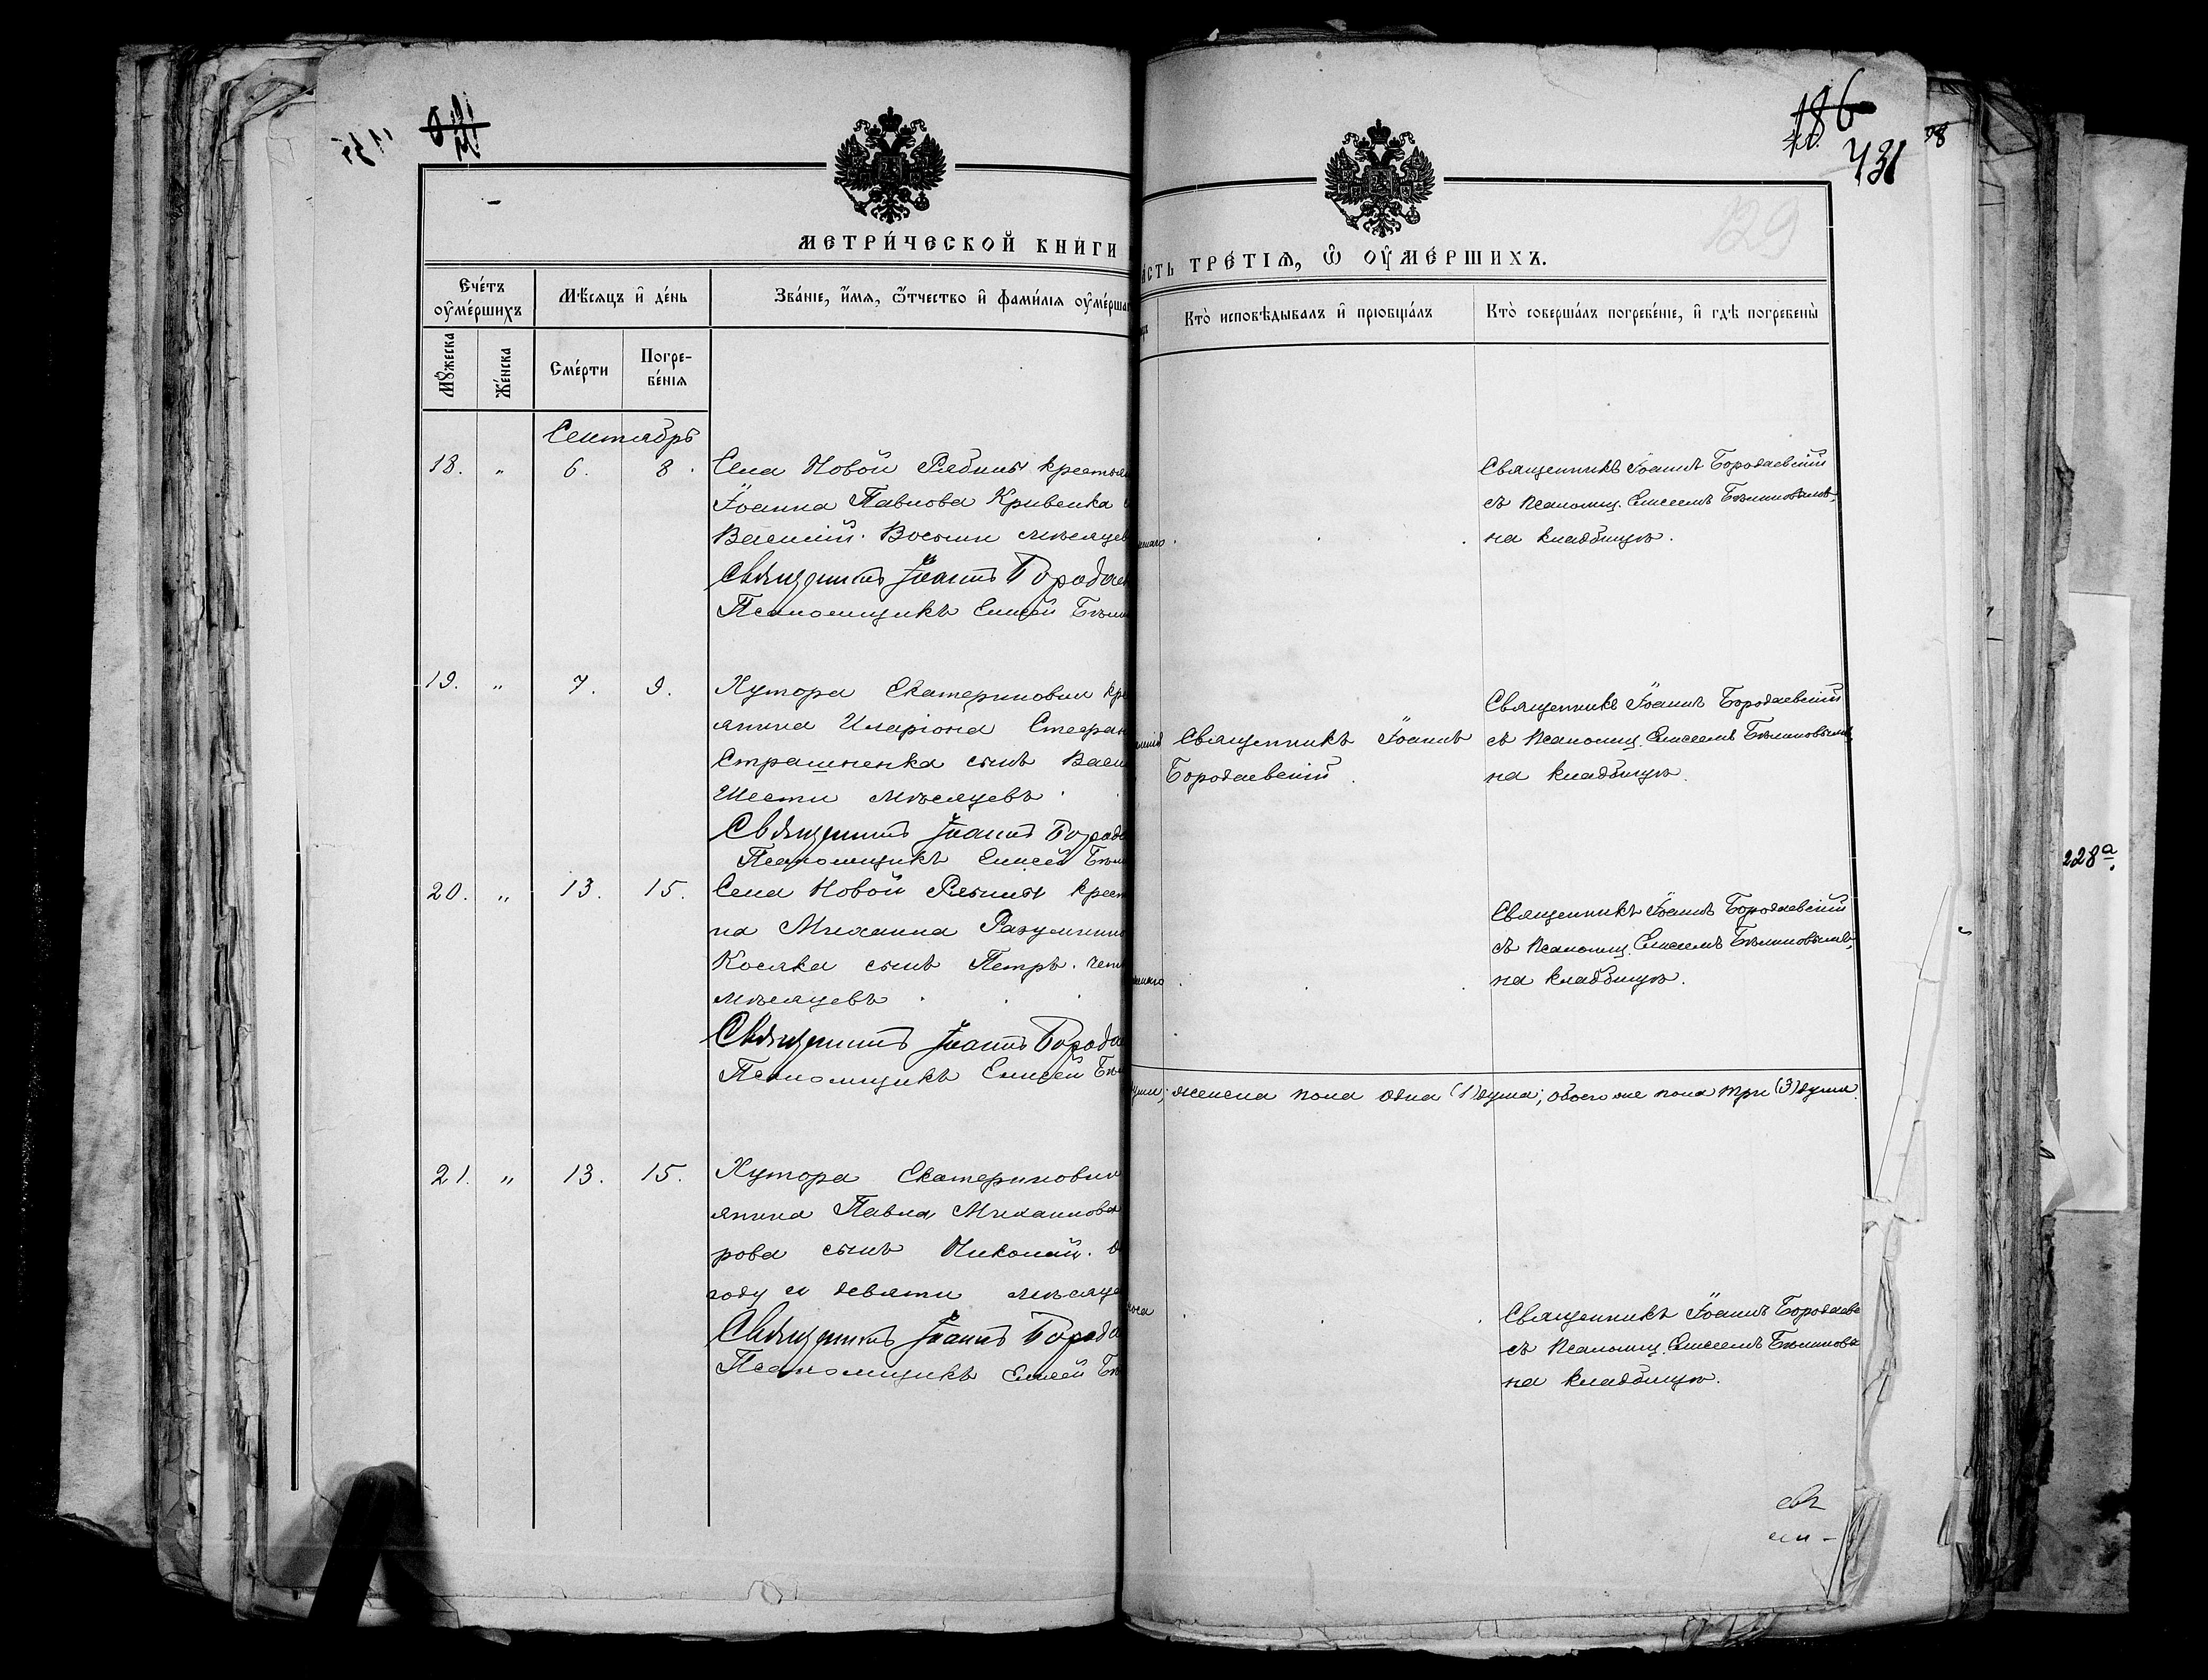 186
431
98
129
МЕТРИ́ЧЕСКОЙ КНИ́ГИ
ТРЕ́ТІѦ, Ѿ ОУ҆МЕ́РШИХЪ.
Сче́тъ оу҆ме́ршихъ
Мѣ́сѧцъ и҆ де́нь
Зва́ніе, и҆́мѧ, ѻ҆́тчество и҆ фами́лія оу҆ме́рша
Кто̀ исповѣ́дывалъ и҆ пріѡбща́лъ
Кто̀ соверша́лъ погребе́ніе, и҆ гдѣ̀ погребены̀
Мꙋ́жеска
Же́нска
Сме́рти
Погре-
бе́нія
Сентябрь
18. „ 6. 8. Села Новой Рябины крестья
Іоанна Павлова Кривенка
Василій. Восьми мѣсяцев
Священникъ Іоаннъ Бородае
Псаломщикъ Елисей Бѣли
Священникъ Іоаннъ Бородаевскій
съ псаломщ. Елисеемъ
на кладбищѣ.
19. „ 7. 9. Хутора Екатериновки кре
янина Иларіона Стефан
Страшненка сынъ Васи
Шести мѣсяцевъ
Священникъ Іоаннъ Борода
Псаломщикъ Елисей Бѣли
Священникъ Іоаннъ
Бородаевскій.
Священникъ Іоаннъ Бородаевскій
съ псаломщ. Елисеемъ
на кладбищѣ.
20. „ 13. 15. Села Новой Рябины крест
на Михаила
Косяка сынъ Петръ. Четы
мѣсяцевъ
Священникъ Іоаннъ Борода
Псаломщикъ Елисей Бѣ
Священникъ Іоаннъ Бородаевскій
съ псаломщ. Елисеемъ
на кладбищѣ.
женска пола одна (1) душа; обоего же пола три (3) души.
21. „ 13. 15. Хутора Екатериновки
янина Павла Михаилова
рова сынъ Николай.
году и девяти мѣсяце
Священникъ Іоаннъ Борода
Псаломщикъ Елисей Бѣ
Священникъ Іоаннъ Бородаевс
съ псаломщ. Елисеемъ
на кладбищѣ.
228а